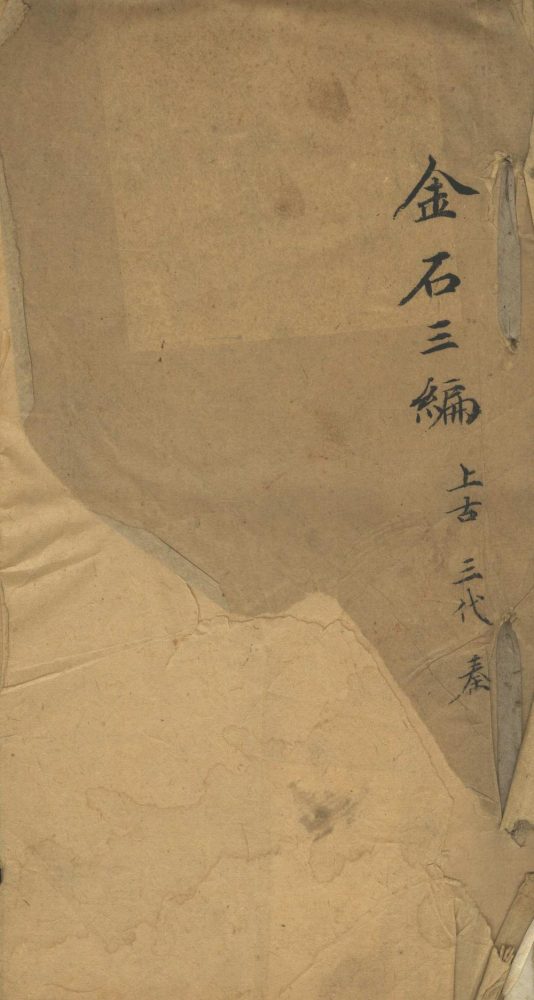 金石三編
上古 三代 秦